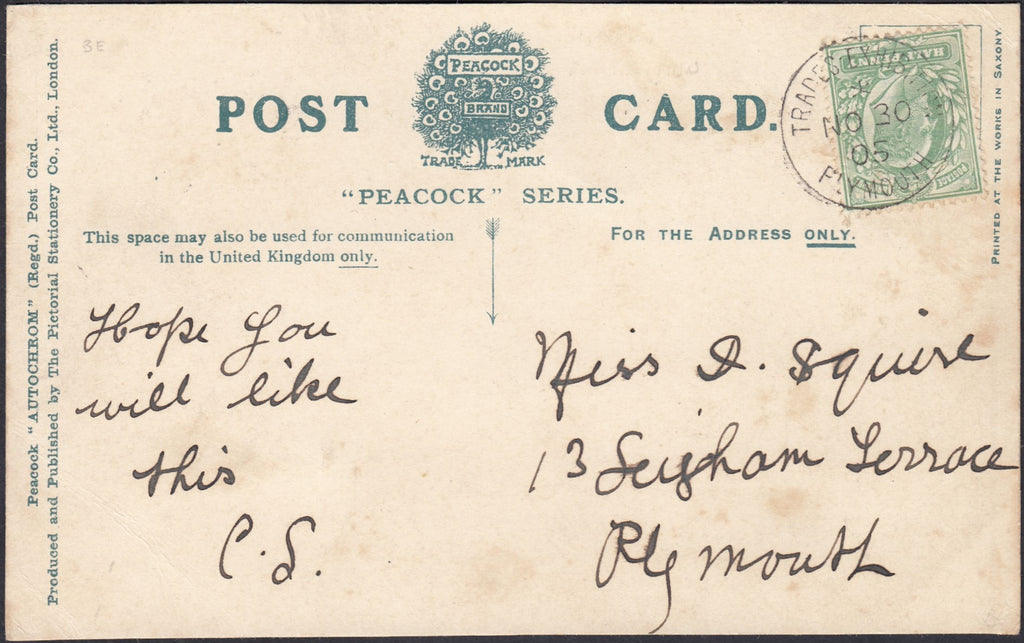 BE
PEACOCK
BRAND
TRADE MARK
POST CARD.
"PEACOCK" SERIES.
This space may also be used for communication
in the United Kingdom only.
FOR THE ADDRESS ONLY.
Hope you
will like
this
C.S.
Miss D. Squire
13 Leigham Terrace
Plymouth
TRADES
NO 30
05
PLYMOUTH
HALFPENNY
POSTAGE
Peacock "AUTOCHROM" (Regd.) Post Card.
Produced and Published by The Pictorial Stationery Co., Ltd., London.
PRINTED AT THE WORKS IN SAXONY.